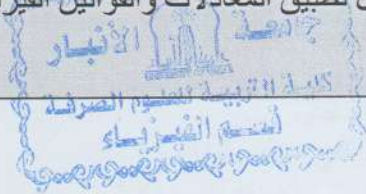 تطبيق المعادلات والقوانين الفيز
جامعة الأنبار
كلية التربية للعلوم الصرفة
قسم الفيزياء